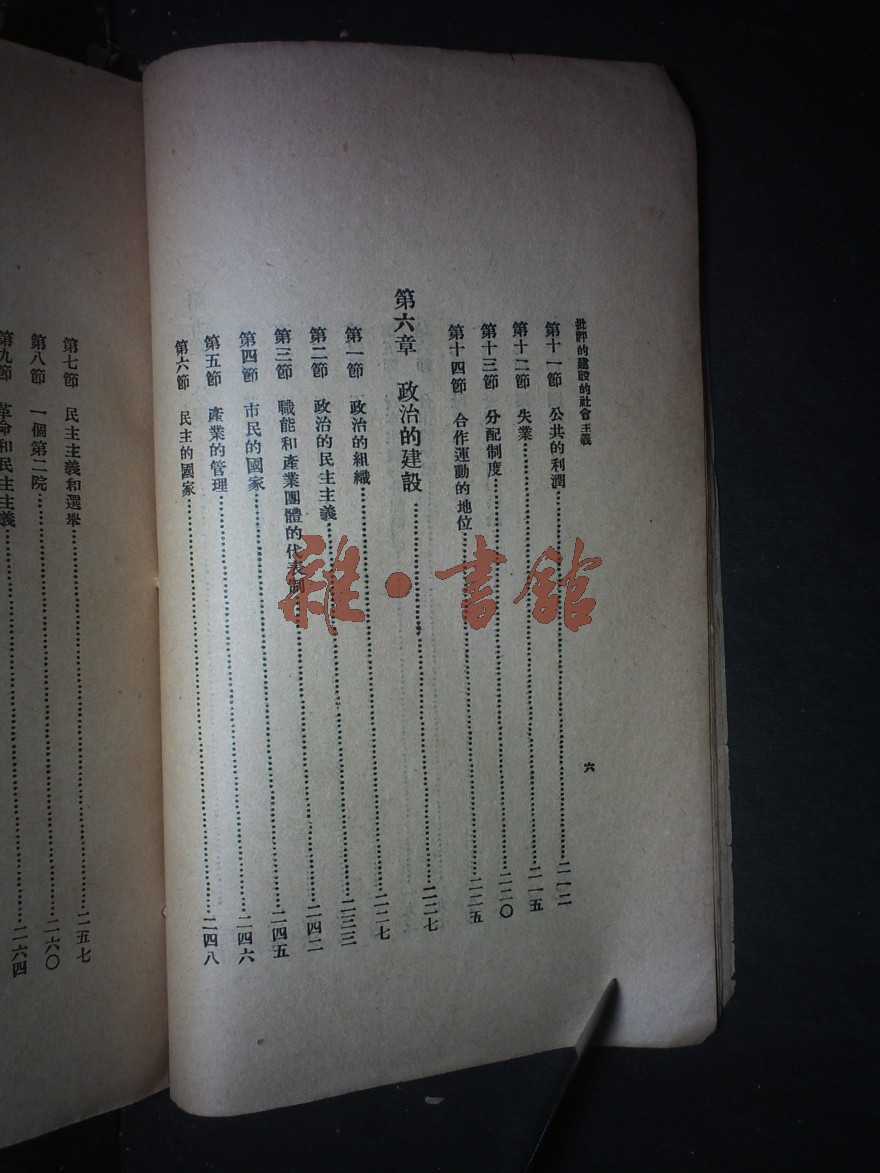 批評的建設的社會主義
第十一節 公共的利潤……二一二
第十二節 失業……二一五
第十三節 分配制度……二二〇
第十四節 合作運動的地位……二二五
第六章 政治的建設……二二七
第一節 政治的組織……二二七
第二節 政治的民主主義……二三三
第三節 職能和產業團體的代表制……二四二
第四節 市民的國家……二四五
第五節 產業的管理……二四六
第六節 民主的國家……二四八
六
第七節 民主主義和選舉……二五七
第八節 一個第二院……二六〇
第九節 革命和民主主義……二六四
雜·書館